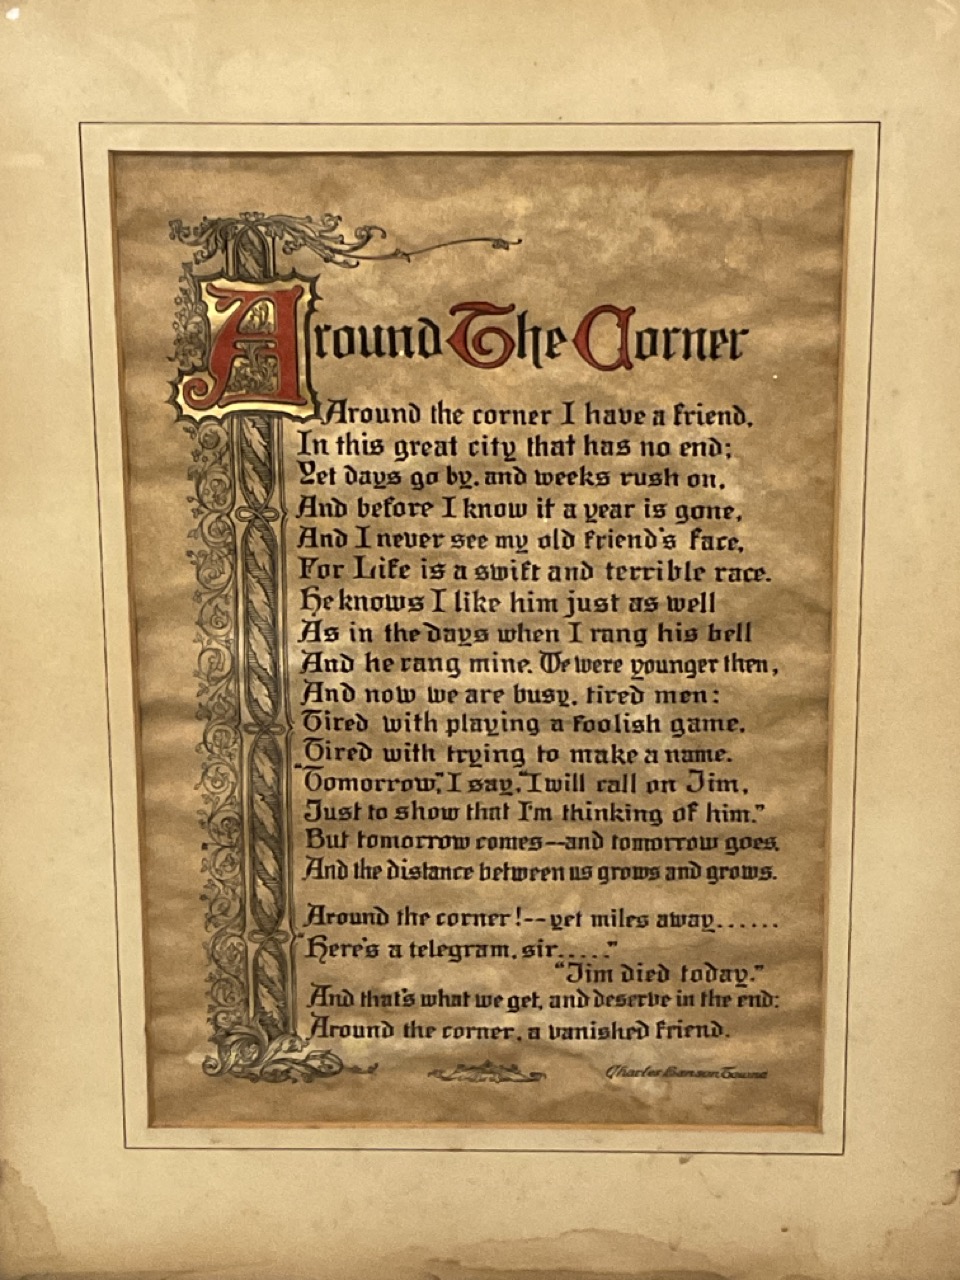 Around The Corner
Around the corner I have a friend,
In this great city that has no end;
Yet days go by, and weeks rush on,
And before I know it a year is gone,
And I never see my old friend's face,
For Life is a swift and terrible race.
He knows I like him just as well
As in the days when I rang his bell
And he rang mine. We were younger then,
And now we are busy, tired men:
Tired with playing a foolish game,
Tired with trying to make a name.
"Tomorrow", I say, "I will call on Jim,
Just to show that I'm thinking of him."
But tomorrow comes--and tomorrow goes,
And the distance between us grows and grows.
Around the corner!--yet miles away......
"Here's a telegram, sir....."
"Jim died today."
And that's what we get, and deserve in the end:
Around the corner, a vanished friend.
Charles Hanson Towne